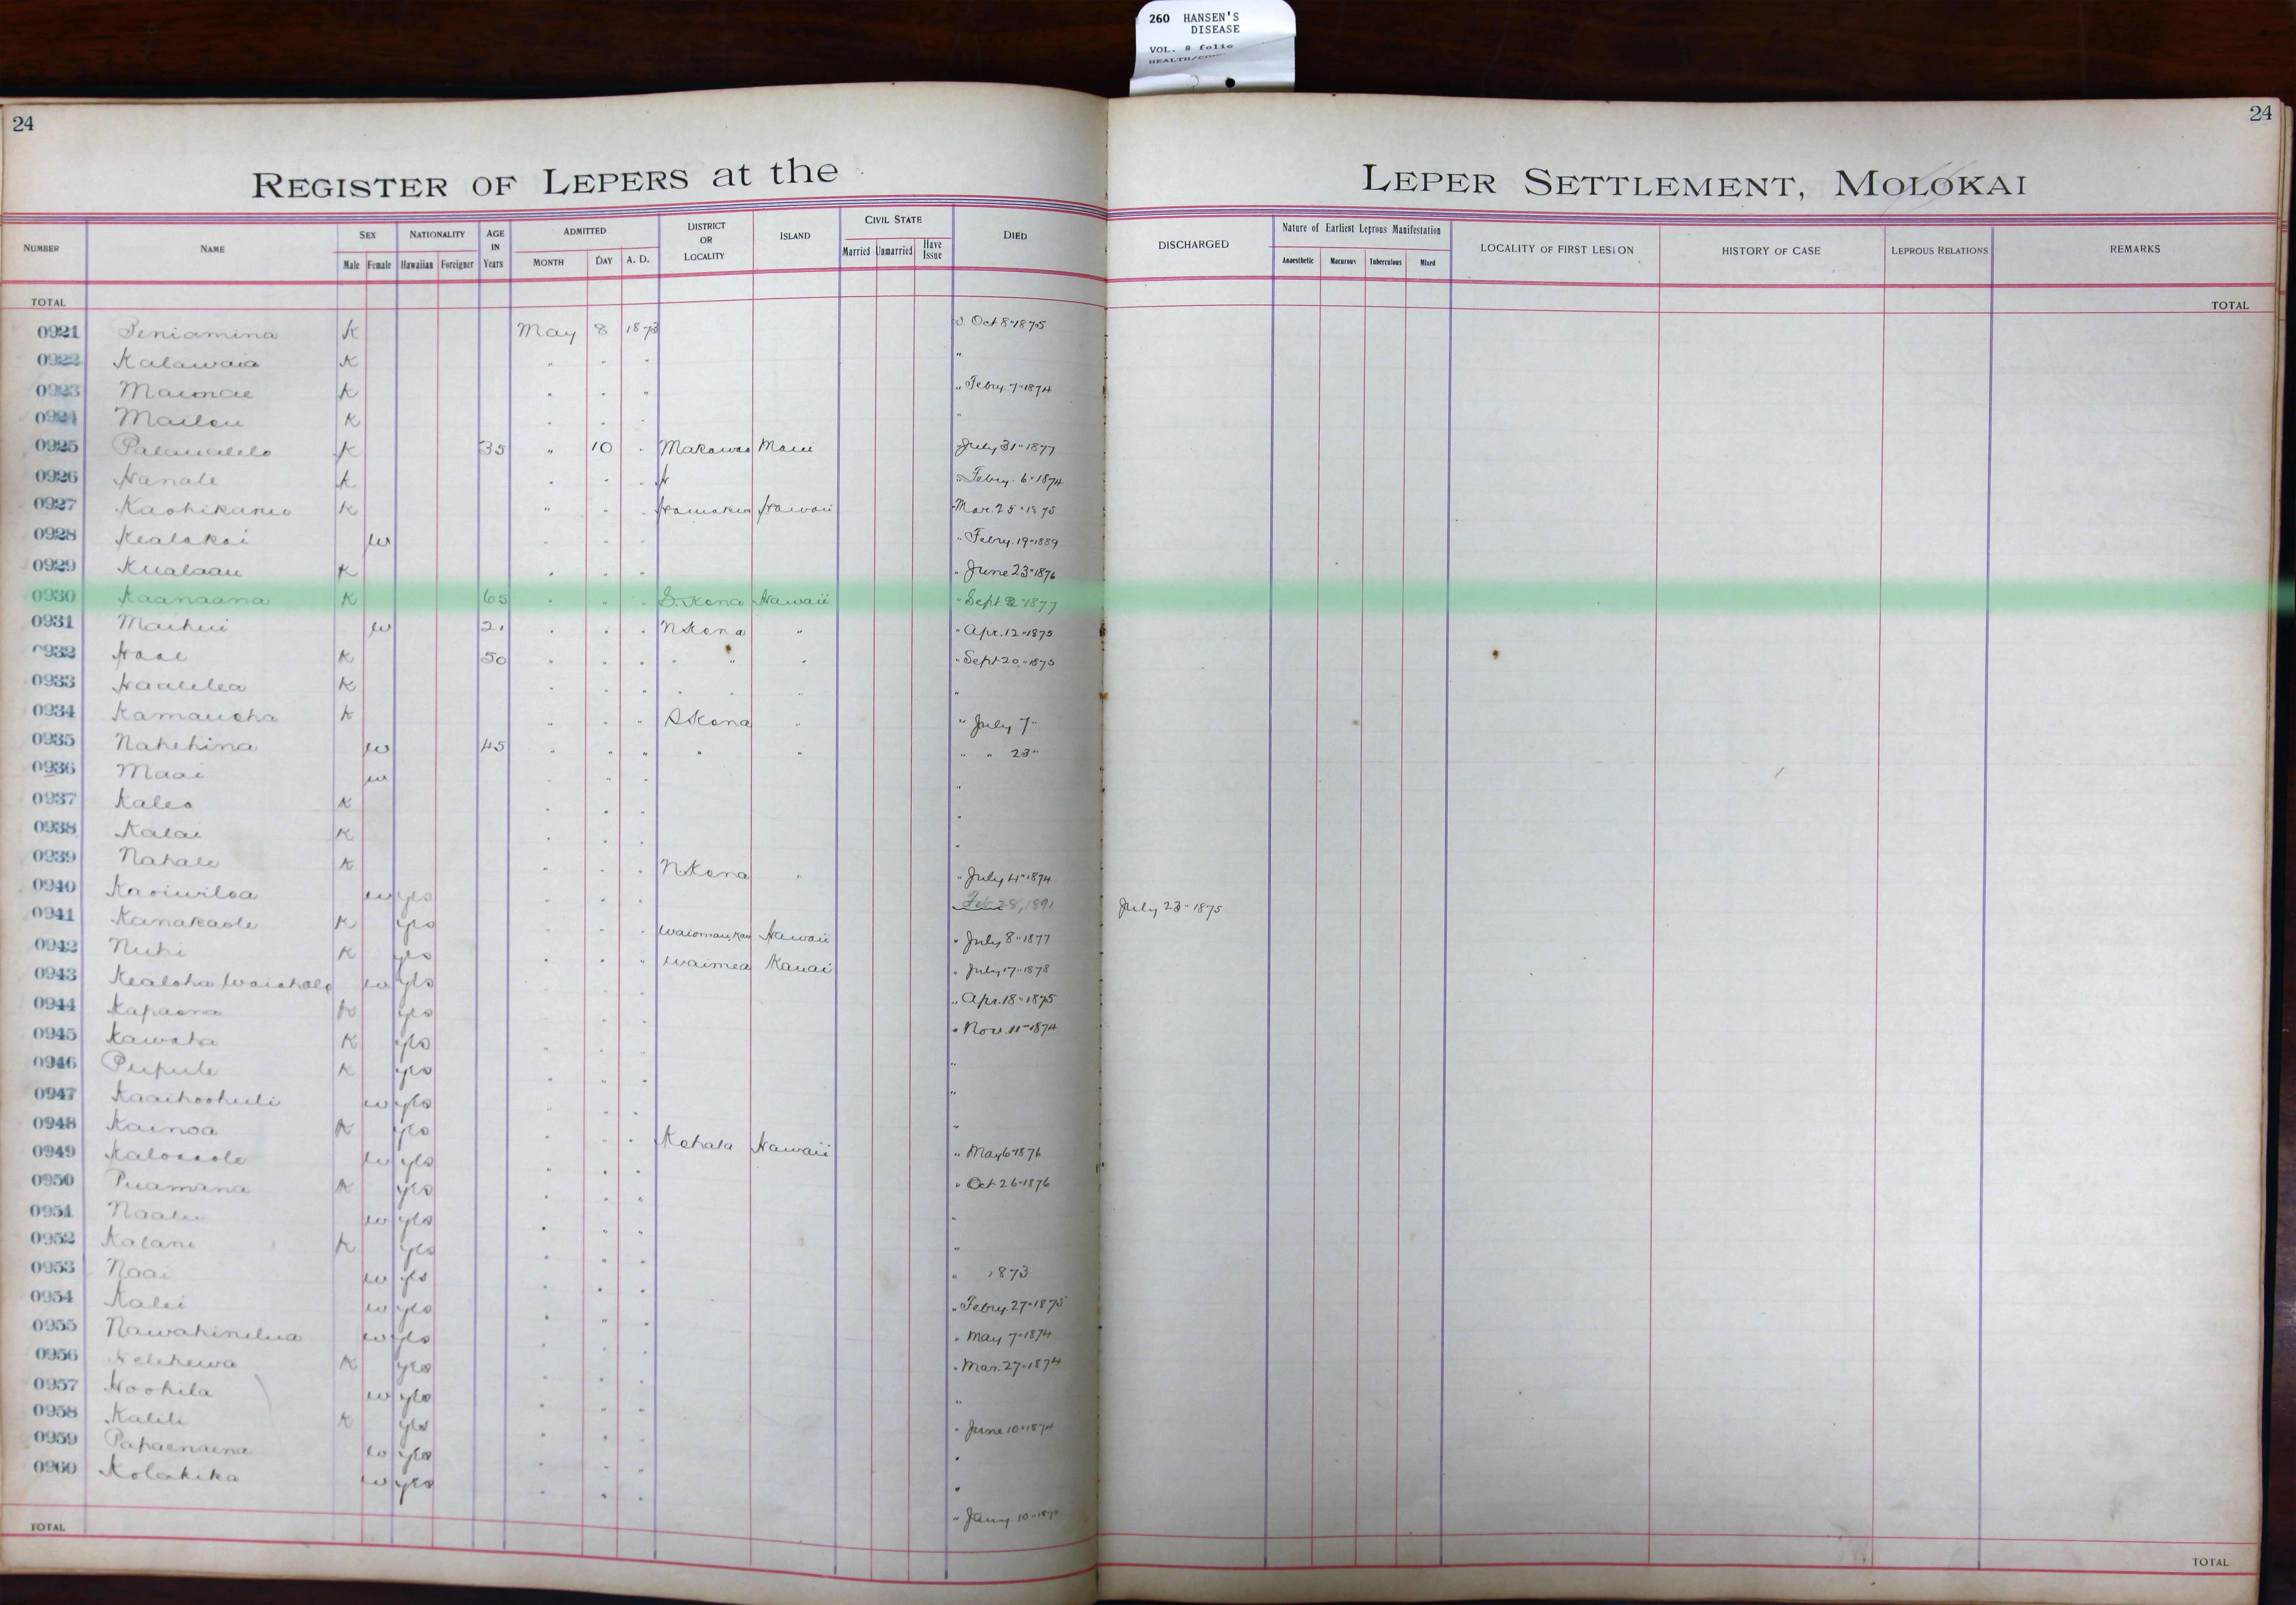 260 HANSEN'S
DISEASE
VOL. 8 folio
24
24
REGISTER OF LEPERS at the LEPER SETTLEMENT, MOLOKAI
NUMBER NAME SEX NATIONALITY AGE IN Years ADMITTED DISTRICT OR LOCALITY ISLAND CIVIL STATE DIED DISCHARGED Nature of Earliest Leprous Manifestation LOCALITY OF FIRST LESION HISTORY OF CASE LEPROUS RELATIONS REMARKS
Male Female Hawaiian Foreigner MONTH DAY A. D. Married Unmarried Have Issue Anaesthetic Macurous Tuberculous Mixed
TOTAL TOTAL
0921 Peniamina K May 8 1873 Oct 8 " 1875
0922 Kalawaia K " " " "
0923 Maunae K " " " " Febry. 7 " 1874
0924 Mailou K " " " "
0925 Palaualelo K 35 " 10 " Makawao Maui July 31 " 1877
0926 Hanale K " " " H " Febry. 6 " 1874
0927 Kaohikanu K " " " Hamakua Hawaii Mar. 25 " 1875
0928 Kealakai w " " " " Febry. 19 " 1889
0929 Kualaau K " " " " June 23 " 1876
0930 Kaanaana K 65 " " " S. Kona Hawaii " Sept 2 " 1877
0931 Maihui w 21 " " " N Kona " " Apr. 12 " 1875
0932 Hooe K 50 " " " " " " " Sept 20 " 1875
0933 Haalelea K " " " " " " "
0934 Kamauoha K " " " S Kona " " July 7 "
0935 Nahehina w 45 " " " " " " " 23 "
0936 Maai w " " " "
0937 Kaleo K " " " "
0938 Kalai K " " " "
0939 Nahale K " " " N Kona " " July 4 " 1874
0940 Kaoiwiloa w yes " " " Feb 28, 1891 July 23 " 1875
0941 Kanakaole K yes " " " Hawaii " July 8 " 1877
0942 Nuhi K yes " " " Waimea Kauai " July 17 " 1878
0943 Kealoha Waiohole w yes " " " " Apr. 18 " 1875
0944 Kapaona K yes " " " " Nov. 11 " 1874
0945 Kawaha K yes " " " "
0946 Pupule K yes " " " "
0947 Kaaihoohuli w yes " " " "
0948 Kainoa K yes " " " Kohala Hawaii " May 6 " 1876
0949 w yes " " " " Oct 26 " 1876
0950 Puamana K yes " " " "
0951 Naalu w yes " " " "
0952 Kalani K yes " " " " 1873
0953 Naai w yes " " " " Febry. 27 " 1875
0954 Kalei w yes " " " " May 7 " 1874
0955 Nawahinelua w yes " " " " Mar. 27 " 1874
0956 Kelehewa K yes " " " "
0957 Hoohila w yes " " " " June 10 " 1874
0958 Kalili K yes " " " "
0959 Papaenaena w yes " " " "
0960 Kolakika w yes " " " " Jany. 10 "
TOTAL TOTAL